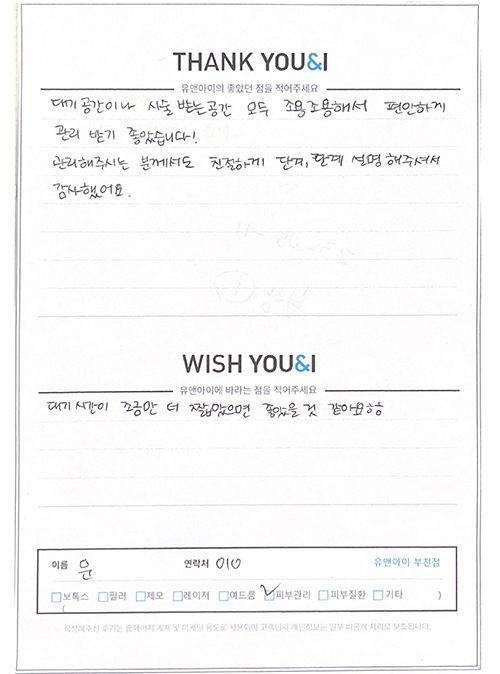 THANK YOU&I
유앤아이의 좋았던 점을 적어주세요
대기공간이나 시술 받는공간 모두 조용조용해서 편안하게
관리 받기 좋았습니다!
관리해주시는 분께서도 친절하게 단계, 단계 설명해주셔서
감사했어요.
WISH YOU&I
유앤아이에 바라는 점을 적어주세요
대기 시간이 조금만 더 짧았으면 좋았을 것 같아요ㅎㅎ
이름 윤 연락처 010 유앤아이 부천점
보톡스 필러 제모 레이저 여드름 피부관리 피부질환 기타 )
(
작성해주신 후기는 홈페이지 게재 및 마케팅 용도로 사용되며 고객님의 개인정보는 일부 바꿔게 처리로 보호됩니다.